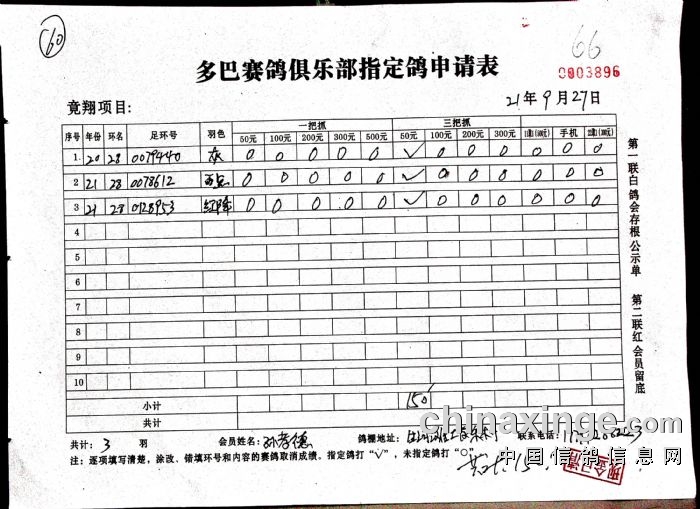 60
66
多巴赛鸽俱乐部指定鸽申请表
0003896
竟翔项目:
21年9月27日
一把抓 三把抓
序号 年份 环名 足环号 羽色 50元 100元 200元 300元 500元 50元 100元 200元 300元 手机
1 20 28 0079440 灰 0 0 0 0 0 √ 0 0 0 0 0 0
2 21 28 0078612 0 0 0 0 0 √ 0 0 0 0 0 0
3 21 28 0128953 红 0 0 0 0 0 √ 0 0 0 0 0 0
4
5
6
7
8
9
10
小计 150
共计
共计: 3 羽 会员姓名: 孙孝德 鸽棚地址: 联系电话:
注: 逐项填写清楚, 涂改、错填环号和内容的赛鸽取消成绩。指定鸽打“√”, 未指定鸽打“O”。
第一联白鸽会存根公示单 第二联红会员留底
chinaxinge.com
中国信鸽信息网
现金已清